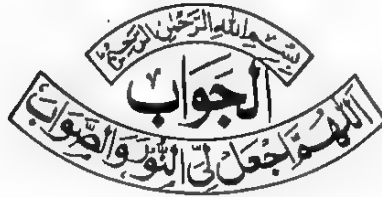 بِسْمِ اللهِ الرَّحْمٰنِ الرَّحِيْمِ
اَلْجَوَاب
اَللّٰهُمَّ اجْعَلْ لِّىَ النُّوْرَ وَالصَّوَاب